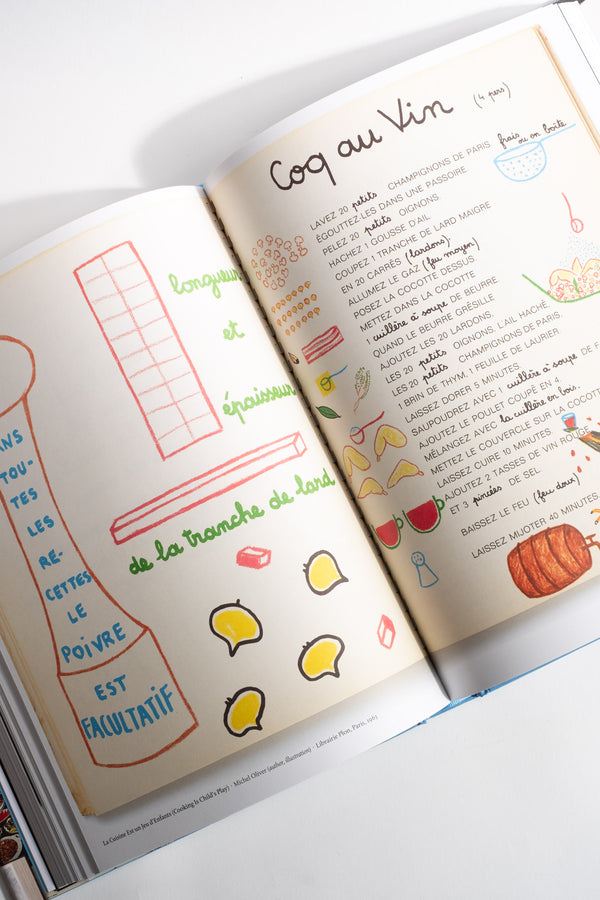 longueur
et
épaisseur
de la tranche de lard
DANS
TOU-
TES
LES
RE-
CETTES
LE
POIVRE
EST
FACULTATIF
La Cuisine Est un Jeu d'Enfants (Cooking Is Child's Play) · Michel Oliver (author, illustration) · Librairie Plon, Paris, 1963
Coq au Vin (4 pers)
LAVEZ 20 petits CHAMPIGNONS DE PARIS frais ou en boîte
ÉGOUTTEZ-LES DANS UNE PASSOIRE
PELEZ 20 petits OIGNONS
HACHEZ 1 GOUSSE D'AIL
COUPEZ 1 TRANCHE DE LARD MAIGRE
EN 20 CARRÉS (lardons)
ALLUMEZ LE GAZ (feu moyen)
POSEZ LA COCOTTE DESSUS
METTEZ DANS LA COCOTTE
1 cuillère à soupe DE BEURRE
QUAND LE BEURRE GRÉSILLE
AJOUTEZ LES 20 LARDONS
LES 20 petits OIGNONS, L'AIL HACHÉ
LES 20 petits CHAMPIGNONS DE PARIS
1 BRIN DE THYM, 1 FEUILLE DE LAURIER
LAISSEZ DORER 5 MINUTES
SAUPOUDREZ AVEC 1 cuillère à soupe DE
AJOUTEZ LE POULET COUPÉ EN 4
MÉLANGEZ AVEC la cuillère en bois.
METTEZ LE COUVERCLE SUR LA COCOTTE
LAISSEZ CUIRE 10 MINUTES
AJOUTEZ 2 TASSES DE VIN ROUGE
ET 3 pincées DE SEL
BAISSEZ LE FEU (feu doux)
LAISSEZ MIJOTER 40 MINUTES